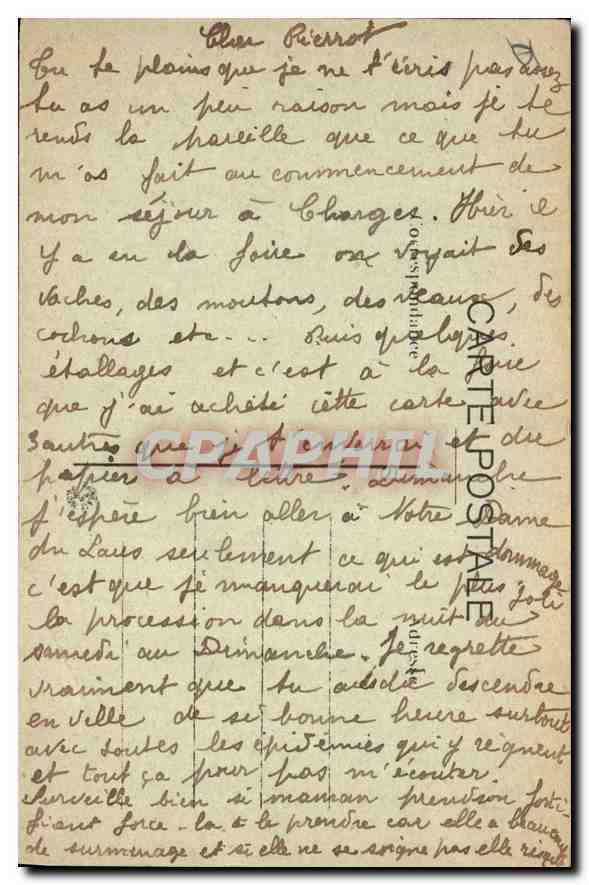 Cher Pierrot
Tu te plains que je ne t'écris pas assez
tu as un peu raison mais je te
rends la pareille que ce que tu
m'as fait au commencement de
mon séjour à Chorges. Hier il
y a eu la foire on voyait des
vaches, des moutons, des veaux, des
cochons etc... Puis quelques
étallages et c'est à la foire
que j'ai acheté cette carte avec
3 autres que je t'enverrai et du
papier à lettre. Dimanche
j'espère bien aller à Notre Dame
du Laus seulement ce qui est dommage
c'est que je manquerai le plus joli
la procession dans la nuit du
samedi au Dimanche. Je regrette
vraiment que tu aies dû descendre
en ville de si bonne heure surtout
avec toutes les épidémies qui y règnent
et tout ça pour pas m'écouter.
Surveille bien si maman prend son forti-
fiant force-la à le prendre car elle a beaucoup
de surmenage et si elle ne se soigne pas elle risque
CARTE POSTALE
Correspondance
Adresse
CPAPHIL